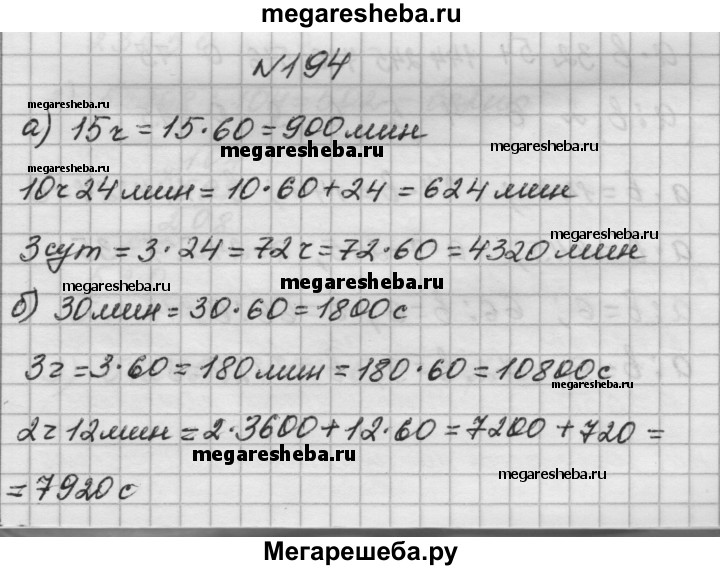 megaresheba.ru
№194
megaresheba.ru
а) 15ч = 15·60 = 900 мин
megaresheba.ru
megaresheba.ru
megaresheba.ru
10ч 24 мин = 10·60+24 = 624 мин
megaresheba.ru
3 сут = 3·24 = 72ч = 72·60 = 4320 мин
megaresheba.ru
б) 30 мин = 30·60 = 1800 с
3ч = 3·60 = 180 мин = 180·60 = 10800 с
megaresheba.ru
2ч 12 мин = 2·3600 + 12·60 = 7200 + 720 =
megaresheba.ru
megaresheba.ru
= 7920 с
Мегарешеба.ру